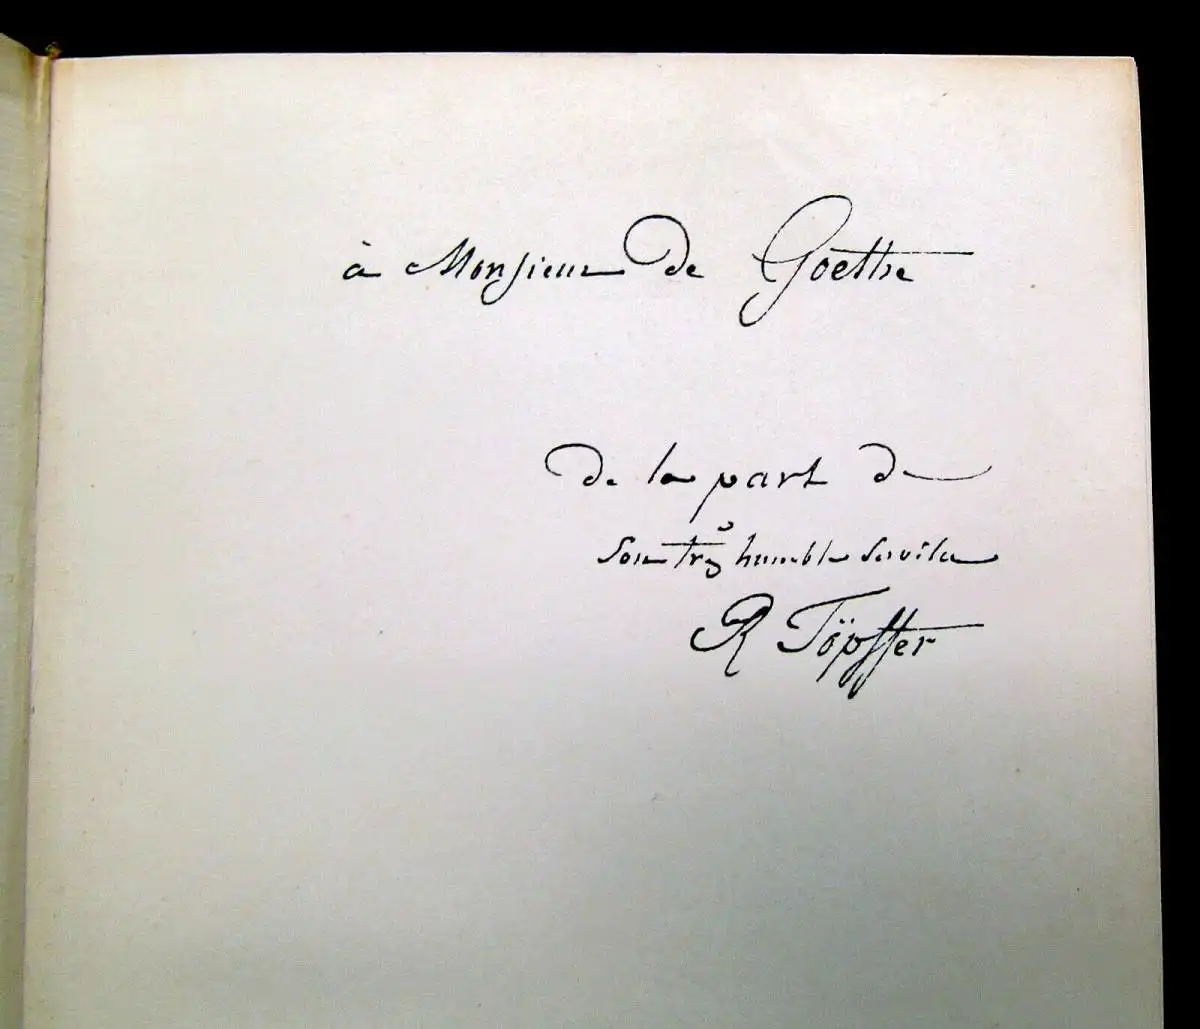 à Monsieur de Goëthe
de la part de
son très humble servite
R Töpffer